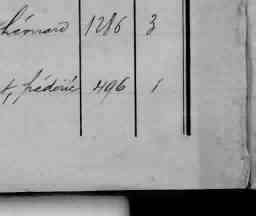 Léonard 1286 3
t, frédéric 496 1